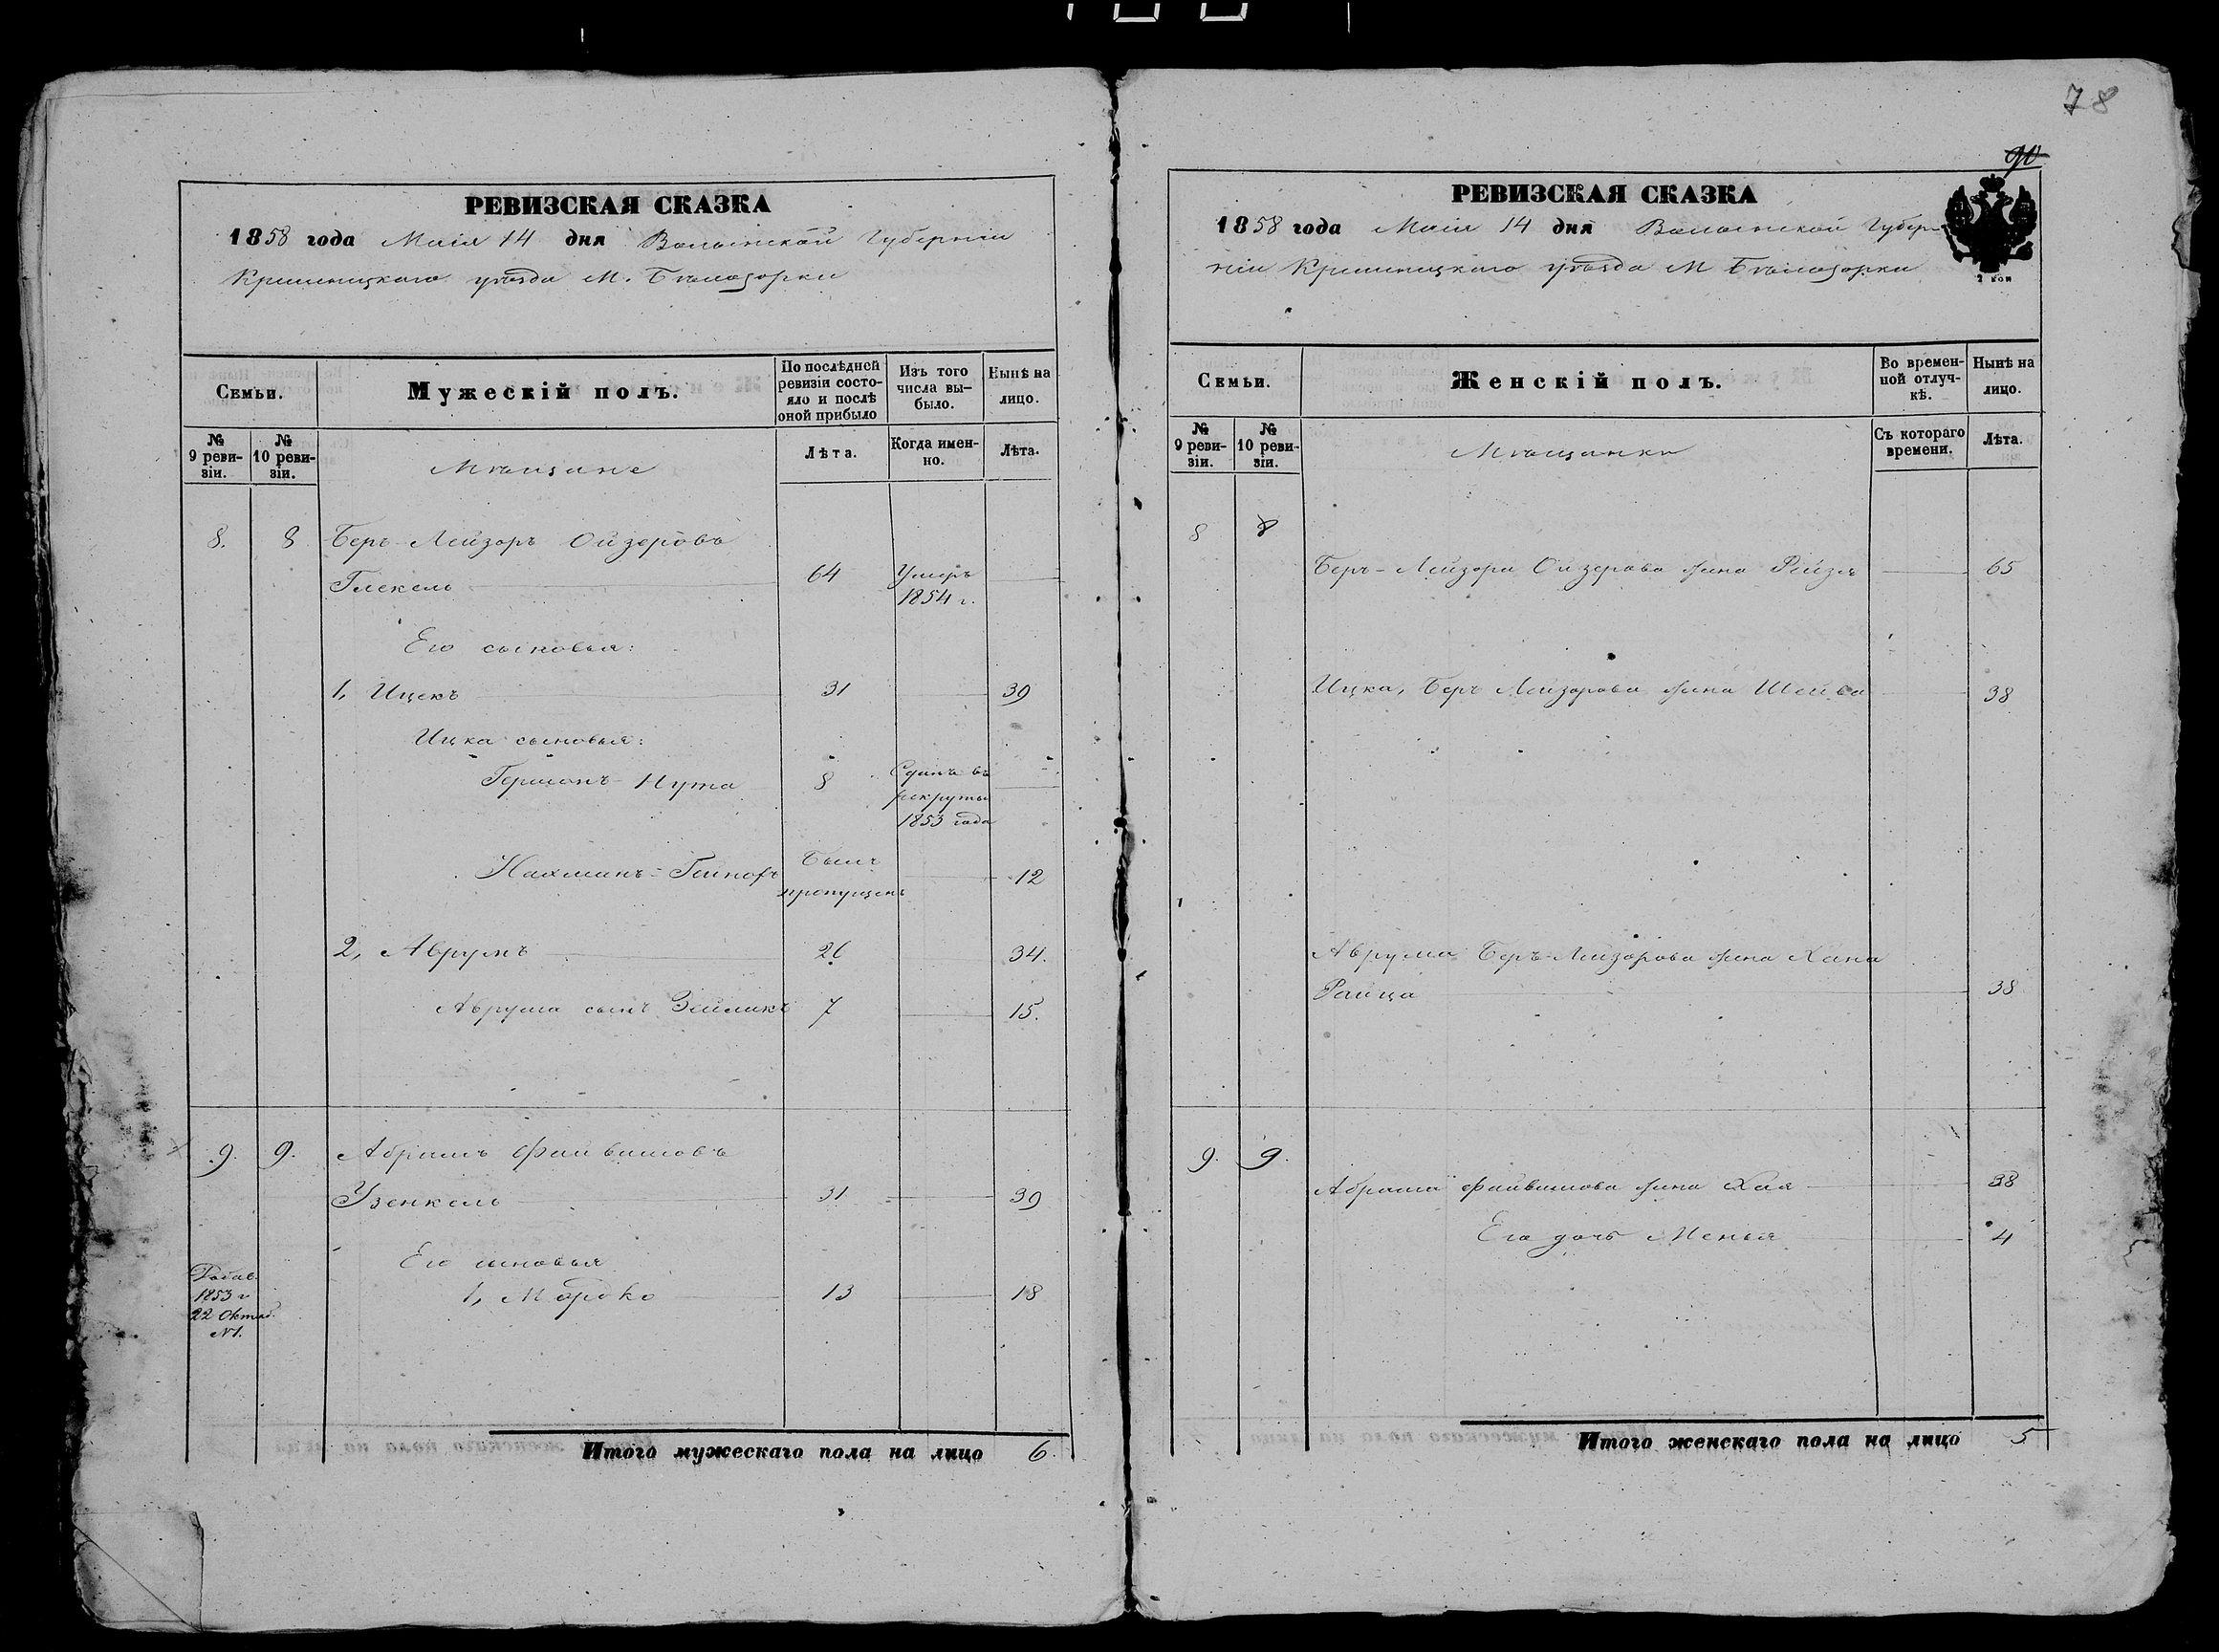 78
90
РЕВИЗСКАЯ СКАЗКА
1858 года Маія 14 дня Волынской Губерніи
Кременецкаго уѣзда М. Бѣлозорки
Семьи.
Мужескій полъ.
По послѣдней ревизіи состояло и послѣ оной прибыло
Изъ того числа выбыло.
Нынѣ на лицо.
№ 9 ревизіи.
№ 10 ревизіи.
Мѣщане
Лѣта.
Когда именно.
Лѣта.
8. 8 Беръ-Лейзоръ Ойзеровъ
Глекель 64 Умеръ 1854 г.
Его сыновья:
1, Ицекъ 31 39
Ицка сыновья:
Гершонъ-Нута 8 Сданъ въ рекруты 1853 года
Нахманъ- Былъ пропущенъ 12
2, Аврумъ 26 34.
Аврума сынъ Зейликъ 7 15.
9. 9. Абрамъ Файвишовъ
Узенкель 31 39
Его сыновья
Добав. 1853 г 22 Октяб. №1.
1, Мордко 13 18
Итого мужескаго пола на лицо 6.
РЕВИЗСКАЯ СКАЗКА
1858 года Маія 14 дня Волынской Губер-
ніи Кременецкаго уѣзда М Бѣлозорки
2 коп
Семьи.
Женскій полъ.
Во временной отлучкѣ.
Нынѣ на лицо.
№ 9 ревизіи.
№ 10 ревизіи.
Мѣщанки
Съ котораго времени.
Лѣта.
8 8
Беръ-Лейзора Ойзерова жена Рейзя 65
Ицка, Беръ Лейзорова жена Шейва 38
Аврума Беръ-Лейзорова жена Хана
Раица 38
9. 9.
Абрама Файвишова жена Хая 38
Его дочь Менья 4
Итого женскаго пола на лицо 5